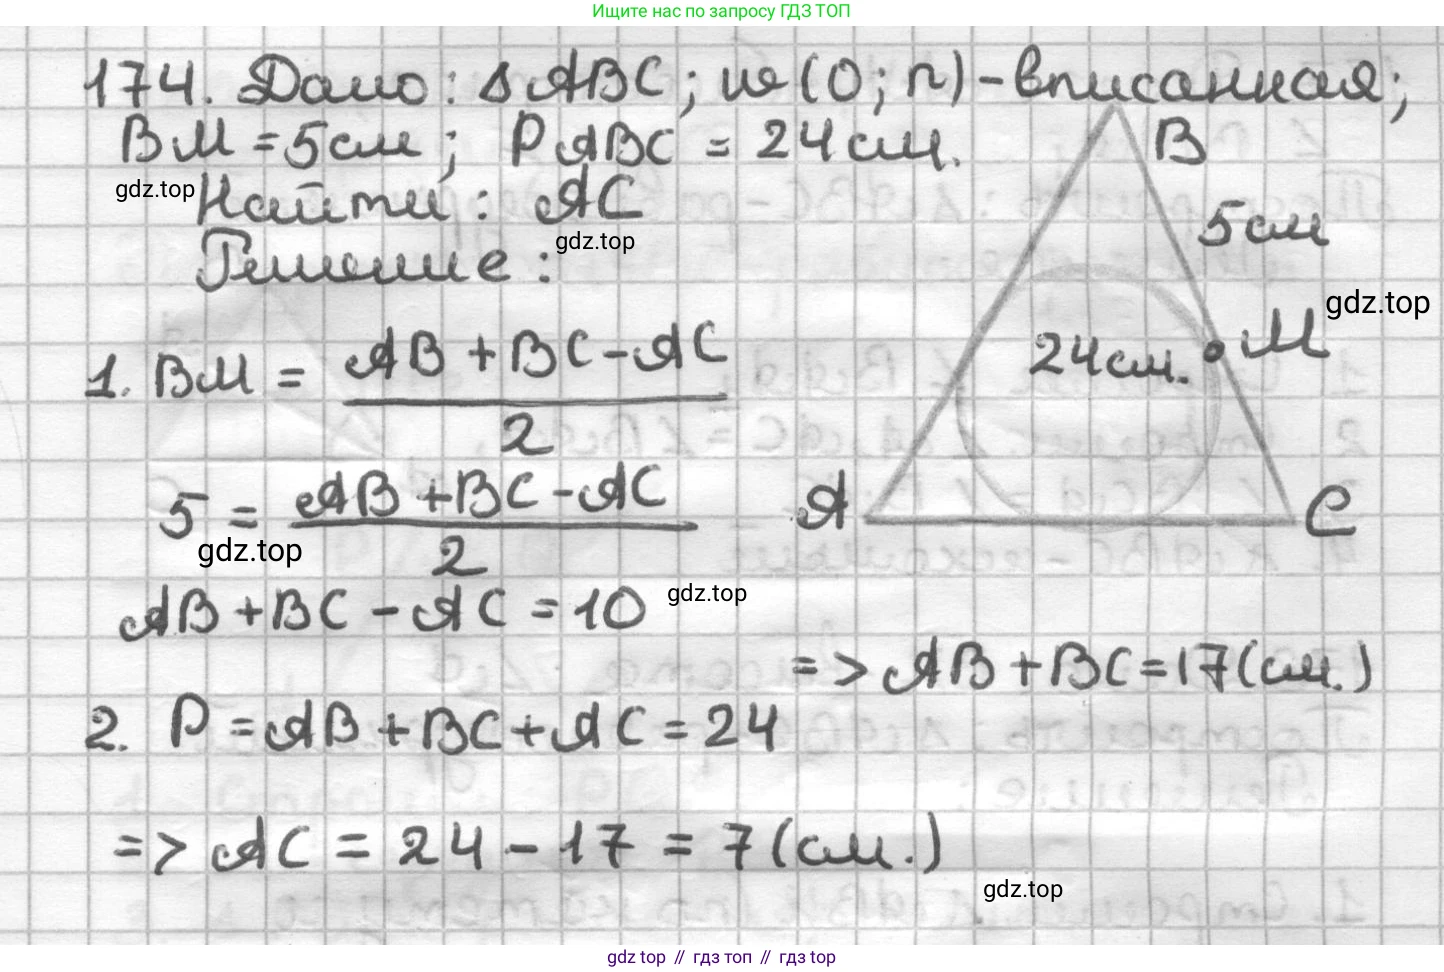 Ищите нас по запросу ГДЗ ТОП
174. Дано: ΔABC; w(O; r) - вписанная;
BM = 5см; PABC = 24см.
B
gdz.top
Найти: AC
gdz.top
5см
Решение:
gdz.top
1. BM = AB + BC - AC
2
24см.
M
5 = AB + BC - AC
2
gdz.top
A
C
AB + BC - AC = 10
gdz.top
=> AB + BC = 17(см.)
2. P = AB + BC + AC = 24
=> AC = 24 - 17 = 7(см.)
gdz.top
gdz top // гдз топ // гдз top